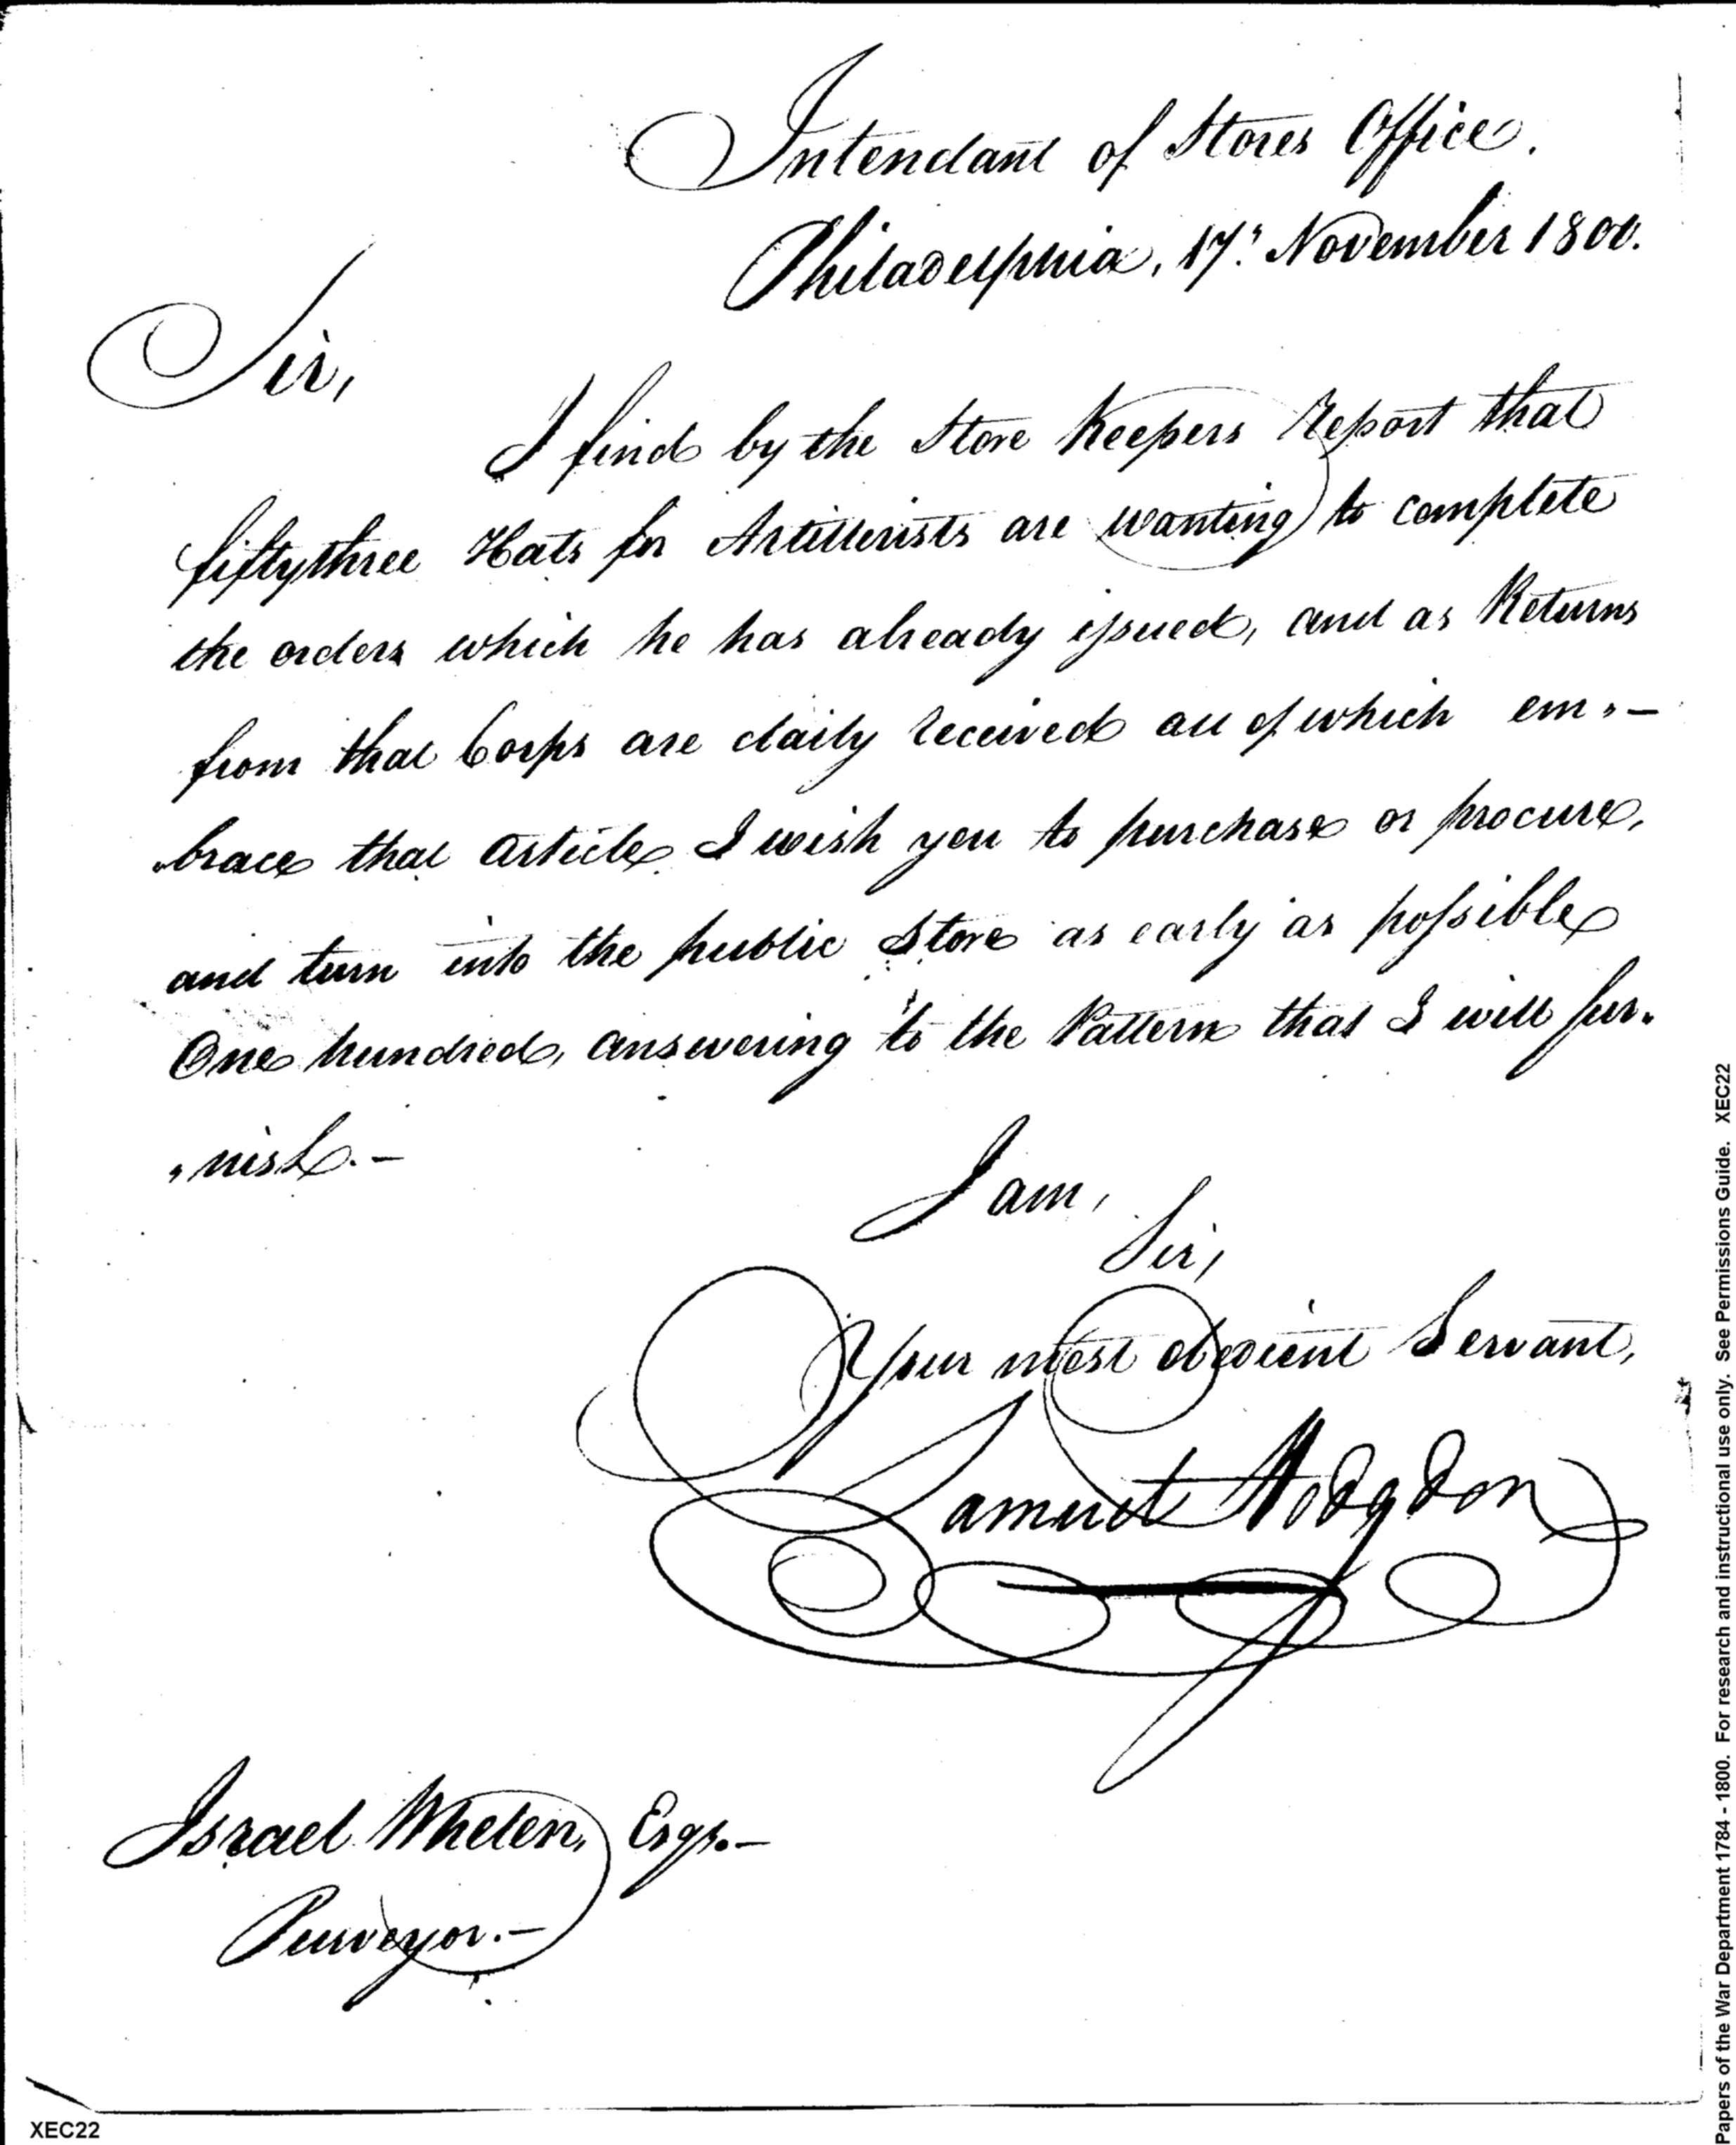 Intendant of Stores Office.
Philadelphia, 17" November 1800.
Sir,
I find by the Store Keepers Report that
fiftythree Hats for Artillerists are wanting to complete
the orders which he has already issued, and as Returns
from that Corps are daily received all of which em"-
"brace that article I wish you to purchase or procure,
and turn into the public Store as early as possible
One hundred, answering to the Pattern that I will fur"
"nish.-
I am,
Sir,
Your most obedient Servant,
Samuel Hodgdon
Israel Whelen, Esqr.-
Purveyor.-
XEC22
Papers of the War Department 1784 - 1800. For research and instructional use only. See Permissions Guide. XEC22